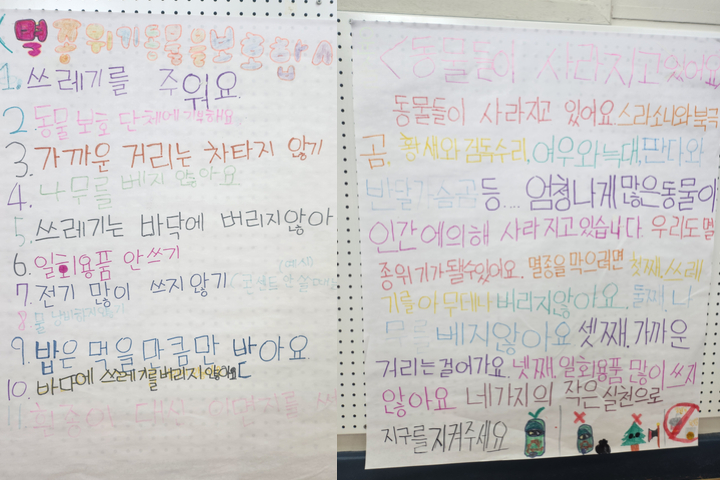 멸종위기동물을보호하ㅅ
1. 쓰레기를 주워요.
2 동물 보호 단체에 기부해요
3. 가까운 거리는 차타지 않기
4. 나무를 베지 않아요
5. 쓰레기는 바닥에 버리지않아
6. 일회용품 안쓰기
7. 전기 많이 쓰지 않기
8. 물
9. 밥은 먹을 마큼만 바아요.
10. 바다에 쓰레기를버리지않아
11.
<동물들이 사라지고있어요
동물들이 사라지고 있어요 스라소니와 북극
곰, 황새와 검독수리, 여우와늑대, 판다와
반달가슴곰 등... 엄청나게 많은동물이
인간에의해 사라지고있습니다. 우리도 멸
종위기가 될수있어요. 멸종을 막으려면 첫째, 쓰레
기를 아무데나 버리지않아요. 둘째, 나
무를 베지않아요 셋째, 가까운
거리는 걸어가요. 넷째, 일회용품 많이 쓰지
않아요 네가지의 작은 실천으로
지구를 지켜주세요